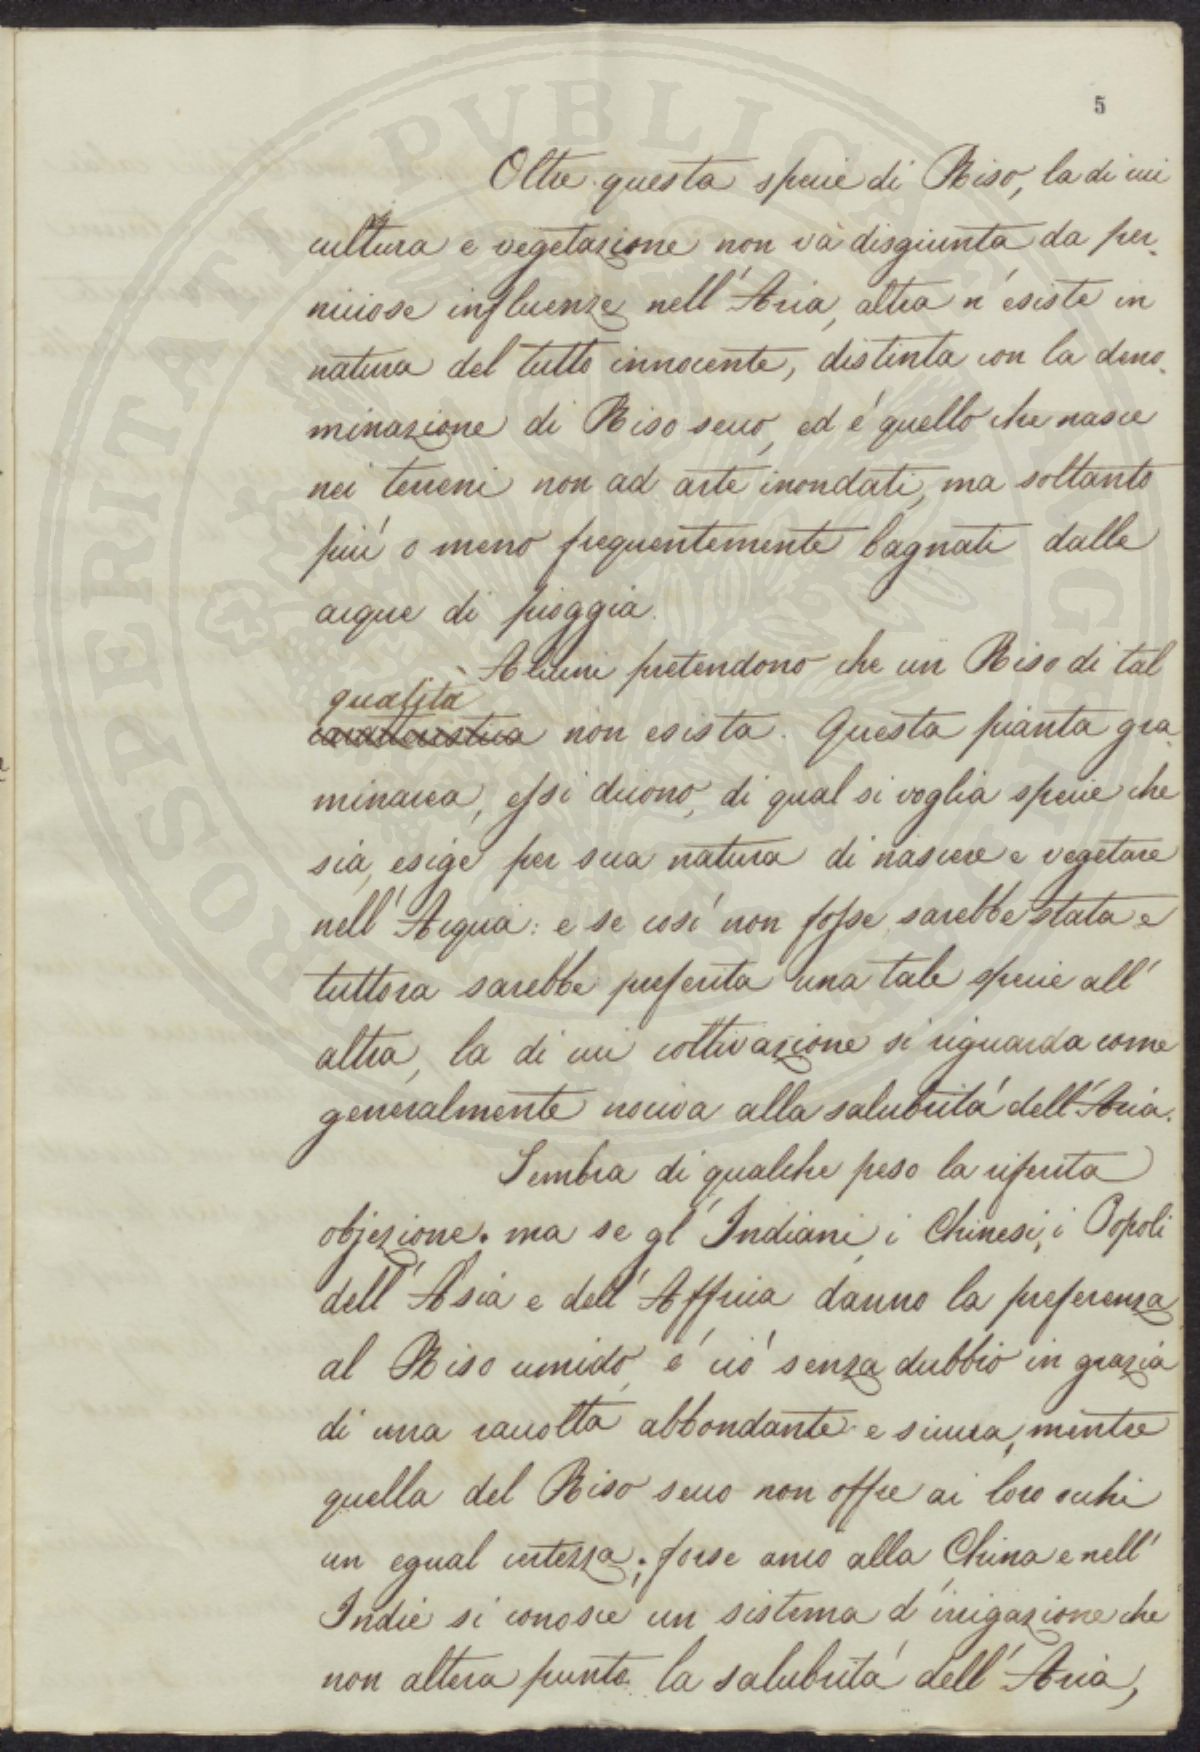 5
Oltre questa specie di Riso, la di cui
cultura e vegetazione non và disgiunta da per-
niciose influenze nell'Aria, altra n'esiste in
natura del tutto innocente, distinta con la deno-
minazione di Riso secco, ed é quello che nasce
nei terreni non ad arte inondati, ma soltanto
piú o meno frequentemente bagnati dalle
acque di pioggia.
Alcuni pretendono che un Riso di tal
qualità
caratteristica non esista. Questa pianta gra-
minacea, essi dicono, di qual si voglia specie che
sia, esige per sua natura di nascere e vegetare
nell'Acqua: e se cosí non fosse sarebbe stata e
tuttora sarebbe preferita una tale specie all'
altra, la di cui coltivazione si riguarda come
generalmente nociva alla salubritá dell'Aria.
Sembra di qualche peso la riferita
objezione. ma se gl'Indiani, i Chinesi, i Popoli
dell'Asia e dell'Affrica danno la preferenza
al Riso umido, é ció senza dubbio in grazia
di una raccolta abbondante e sicura, mentre
quella del Riso secco non offre ai loro occhi
un egual certezza; forse anco alla China e nell'
Indie si conosce un sistema d'irrigazione che
non altera punto la salubritá dell'Aria,
PROSPERITATI PUBLICAE AUGENDAE